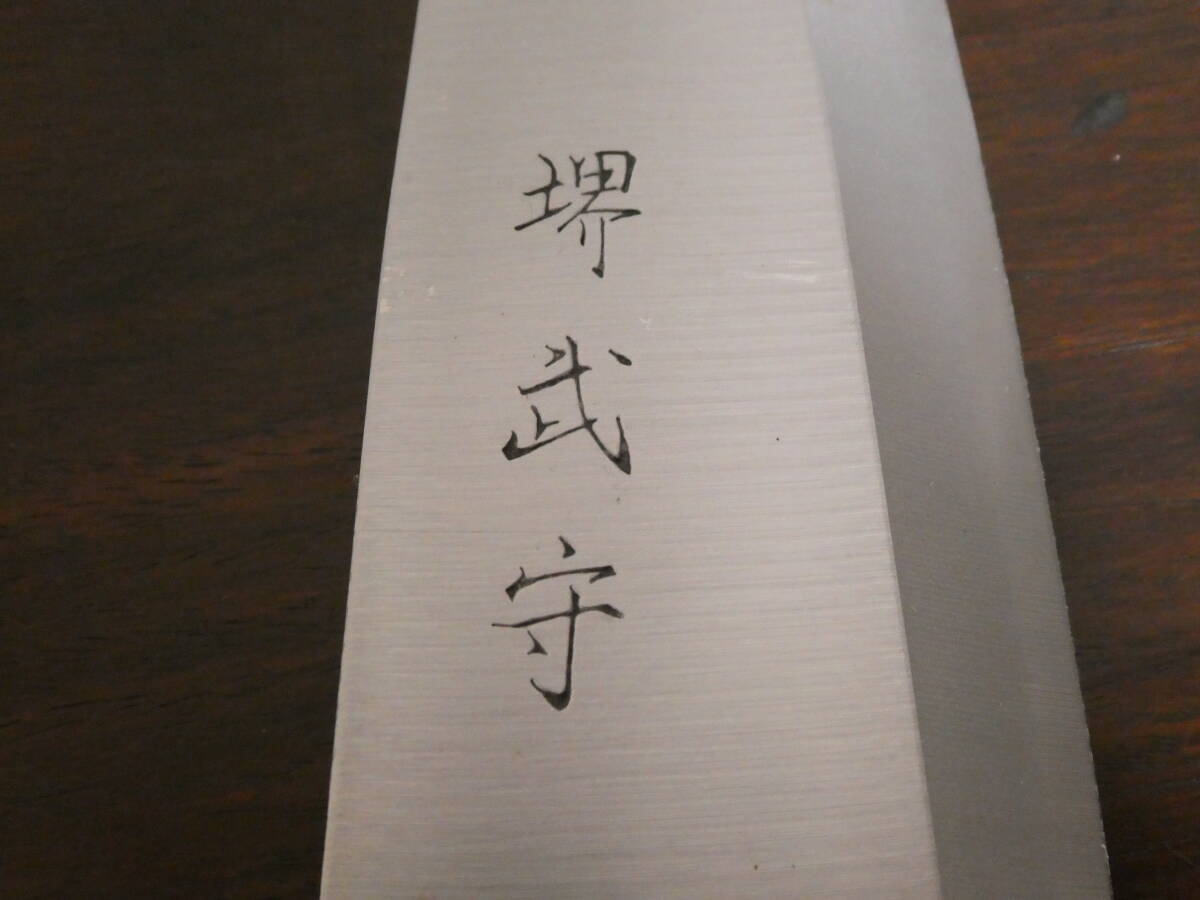 堺武守